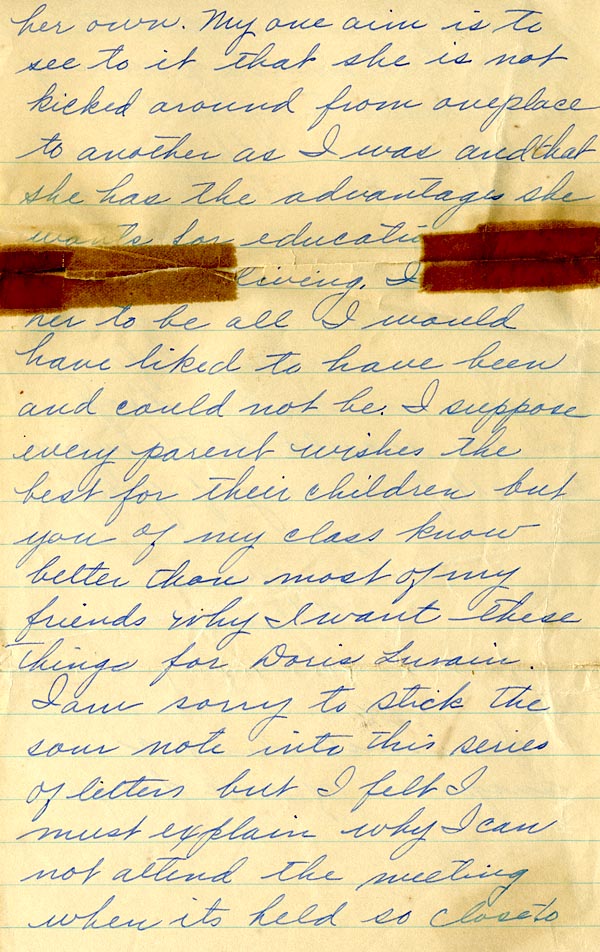 her own. My one aim is to
see to it that she is not
kicked around from one place
to another as I was and that
she has the advantages she
wants for educatio
living. I
her to be all I would
have liked to have been
and could not be. I suppose
every parent wishes the
best for their children but
you of my class know
better than most of my
friends why I want these
things for Doris Luvain.
I am sorry to stick the
sour note into this series
of letters but I felt I
must explain why I can
not attend the meeting
when its held so close to